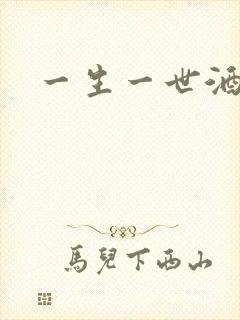 一生一世酒
馬兒下西山